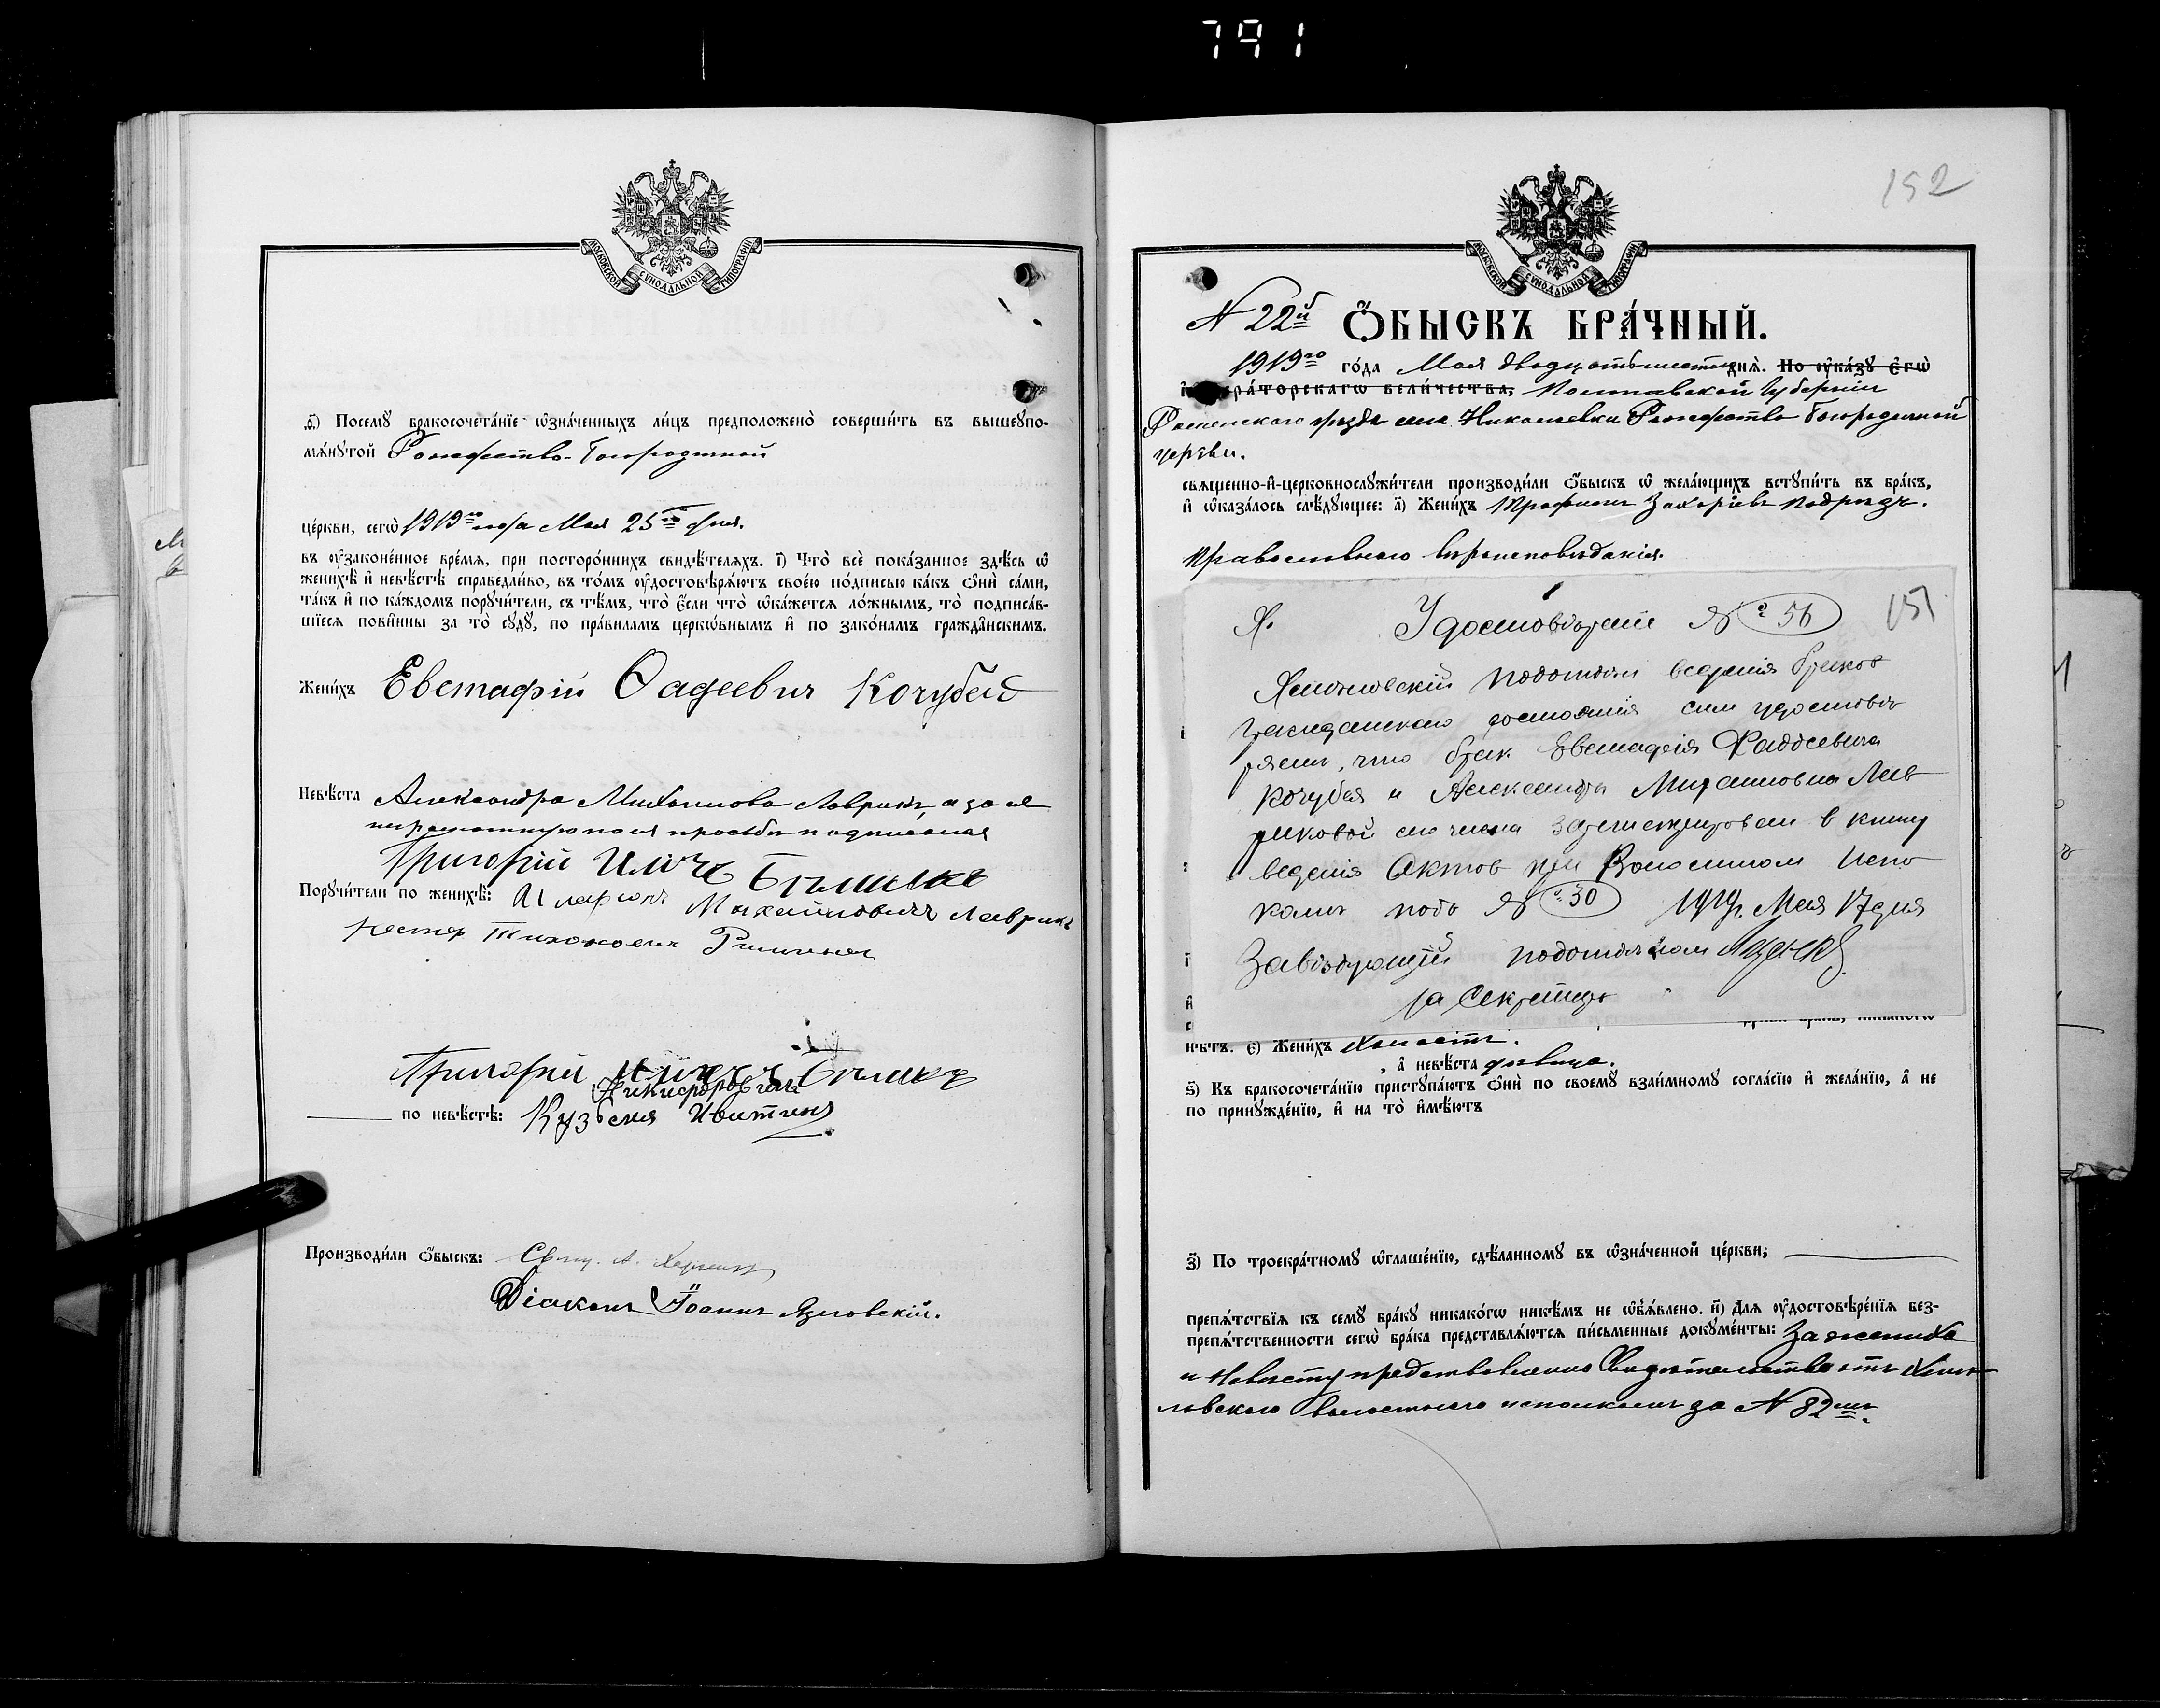 791
МОСКОВСКОЙ СУНОДАЛЬНОЙ ТИПОГРАФІИ
Посемꙋ бракосочета́нїе ѡ҆зна́ченныхъ ли́цъ предположено̀ соверши́ть въ вышеꙋпо-
мѧ́нꙋтой Рождество-Богородичной
це́ркви, сегѡ̀ 1919го года Мая 25го дня.
въ ᲂу҆законе́нное вре́мѧ, при посторо́ннихъ свидѣ́телѧхъ. і҃) Что̀ всѐ пока́занное здѣ́сь ѡ҆
женихѣ̀ и҆ невѣ́стѣ справедли́во, въ то́мъ ᲂу҆достовѣрѧ́ютъ свое́ю по́дписью ка́къ ѻ҆нѝ са́ми,
та́къ и҆ по ка́ждомъ порꙋчи́тели, съ тѣ́мъ, что̀ є҆́сли что̀ ѡ҆ка́жетсѧ ло́жнымъ, то̀ подписа́в-
шїесѧ пови́нны за то̀ сꙋдꙋ̀, по пра́виламъ церкѡ́внымъ и҆ по зако́намъ гражда́нскимъ.
Жени́хъ Евстафій Ѳадеевич Кочубей
Невѣ́ста Александра Михаилова Лаврикъ, а за ея
неграмотную по ея просьбѣ подписался
Григорій Иліч
Порꙋчи́тели по женихѣ̀: Иларіонъ Михайловичъ Лаврикъ
Нестер Тихонович
Григорій
Никифорович
по невѣ́стѣ: Кузьма
Производи́ли ѻ҆́быскъ: Свящ. А.
Діаконъ Іоаннъ Язловскій.
152
МОСКОВСКОЙ СУНОДАЛЬНОЙ ТИПОГРАФІИ
N 22й ѺБЫСКЪ БРА́ЧНЫЙ.
1919го го́да Мая двадцать шестого днѧ̀. По ᲂу҆ка́зꙋ є҆гѡ̀
и҆мпера́торскагѡ вели́чества, Полтавской Губерніи
Роменскаго уѣзда села Николаевки Рождество Богородичной
церкви.
свѧще́нно-и҆-церковнослꙋжи́тели производи́ли ѻ҆́быскъ ѡ҆ жела́ющихъ встꙋпи́ть въ бра́къ,
и҆ ѡ҆каза́лось слѣ́дꙋющее: а҃) Жени́хъ Трофимъ Захаріевъ Подрѣзъ.
Православнаго вѣроисповѣданія.
151
Удостовѣреніе № 56
подотдѣл веденія браков
гражданскаго состоянія сим удостовѣ
ряет, что брак Евстафія Фаддеевича
Кочубея и Александры Михаиловна Лав
риковой сего числа зарегистрирован в книгу
веденія Актов при Волостном Испо
комѣ подъ № 30 1919г. Мая 17 дня
Завѣдующій подотдѣлом
за Секретаря
нѣ́тъ. є҃) Жени́хъ холостъ.
, а҆ невѣ́ста дѣвица.
ѕ҃) Къ бракосочета́нїю пристꙋпа́ютъ ѻ҆нѝ по своемꙋ̀ взаи́мномꙋ согла́сїю и҆ жела́нїю, а҆ не
по принꙋжде́нїю, и҆ на то̀ и҆мѣ́ютъ
з҃) По троекра́тномꙋ ѡ҆глаше́нїю, сдѣ́ланномꙋ въ ѡ҆зна́ченной це́ркви;
препѧ́тствїѧ къ семꙋ̀ бра́кꙋ никако́гѡ никѣ́мъ не ѡ҆б̾ѧ́влено. и҃) Длѧ ᲂу҆достовѣре́нїѧ без-
препѧ́тственности сегѡ̀ бра́ка представлѧ́ютсѧ пи́сьменные докꙋме́нты: За жениха
и Невѣсту представлено Свидѣтельство отъ Хмѣ-
ловскаго волостного исполкома за N 82мъ.